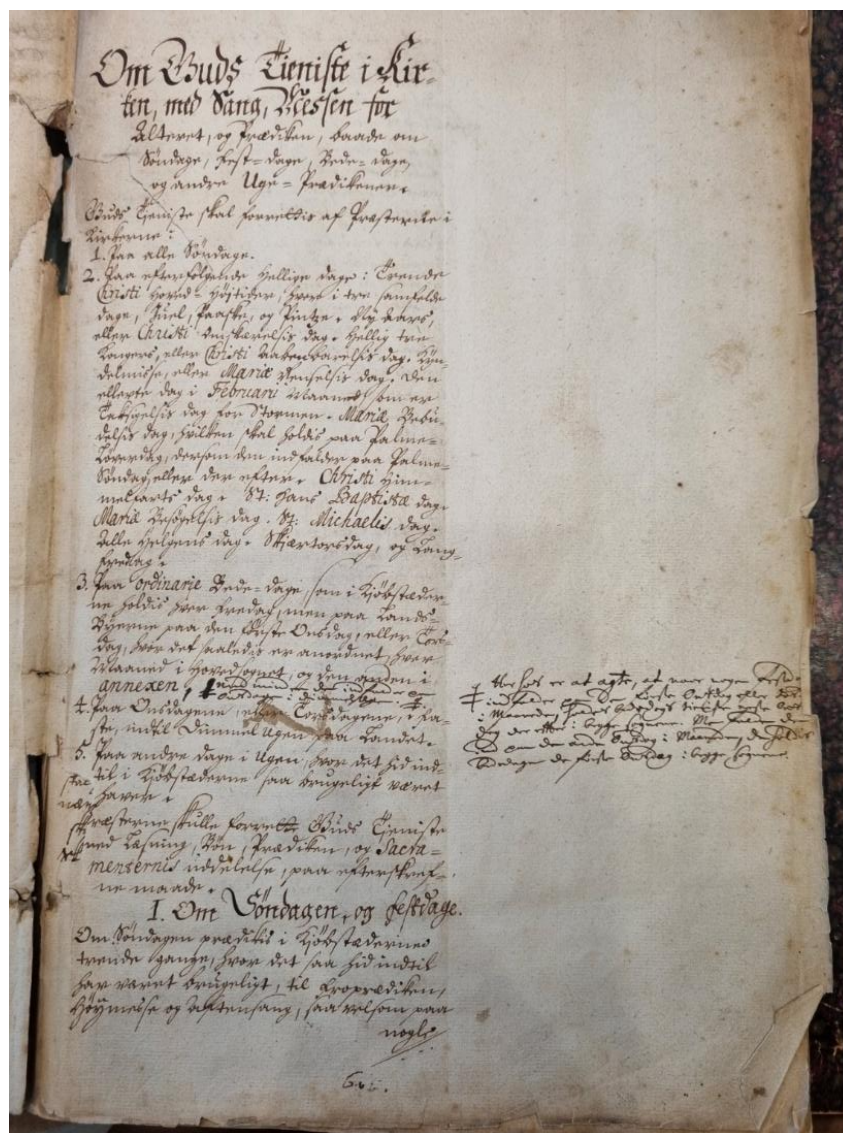 Om Guds Tieniste i Kir-
ken, med Sang, Messen for
Alteret, og Prædiken, baade om
Søndage, Fest-dage, Bede-dage,
og andre Uge-Prædikener.
Guds Tieniste skal forrettis af Præsterne i
Kirkerne:
1. Paa alle Søndage.
2. Paa efterfølgende hellige dage: Trende
Christi Hoved-Høitider, hver i tre samfelde
dage, Juel, Paaske, og Pintze. Ny Aars,
eller Christi Omskærelsis dag. Hellig tre
Kongers, eller Christi Aabenbarelsis dag. Kyn-
delmisse, eller Mariæ Renselsis dag. Den
ellefte dag i Februarii Maaned, som er
Taksigelsis dag for Stormen. Mariæ Bebu-
delsis dag, hvilken skal holdis paa Palme-
Løverdag, dersom den indfalder paa Palme-
Søndag, eller der efter. Christi Him-
melfarts dag. St: Hans Baptistæ dag.
Mariæ Besøgelsis dag. St: Michaelis dag.
Alle Helgens dag. Skiærtorsdag, og Lang-
fredag.
3. Paa ordinarie Bede-dage, som i Kiøbstæder-
ne holdis hver Fredag, men paa Lands-
Byerne paa den første Onsdag, eller Tors-
dag, hvor det saaledis er anordnet, hver
Maaned i Hovedsognet, og den anden i
annexen,
4. Paa Onsdagene, eller Torsdagene, i Fa-
ste, indtil Dimmel Ugen paa Landet.
5. Paa andre dage i Ugen, hvor det hid ind-
til i Kiøbstæderne saa brugeligt været
haver.
Præsterne skulle forrette Guds Tieniste
med Læsning, Bøn, Prædiken, og Sacra-
menternis uddelelse, paa efterskref-
ne maade.
I. Om Søndagen, og festdage.
Om Søndagen prædikis i Kiøbstæderne
trende gange, hvor det saa hid indtil
har været brugeligt, til Froprædiken,
Høymesse og Aftensang, saa velsom paa
nogle
Her hos er at agte, at naar nogen Fest
indfalder den første Onsdag eller
i Maaneden, holdes bededags
dag der efter i begge Sognene. Men falder den
paa den anden Onsdag i Maaneden, da holdes
Bededagen de første Onsdag i begge Sognene.